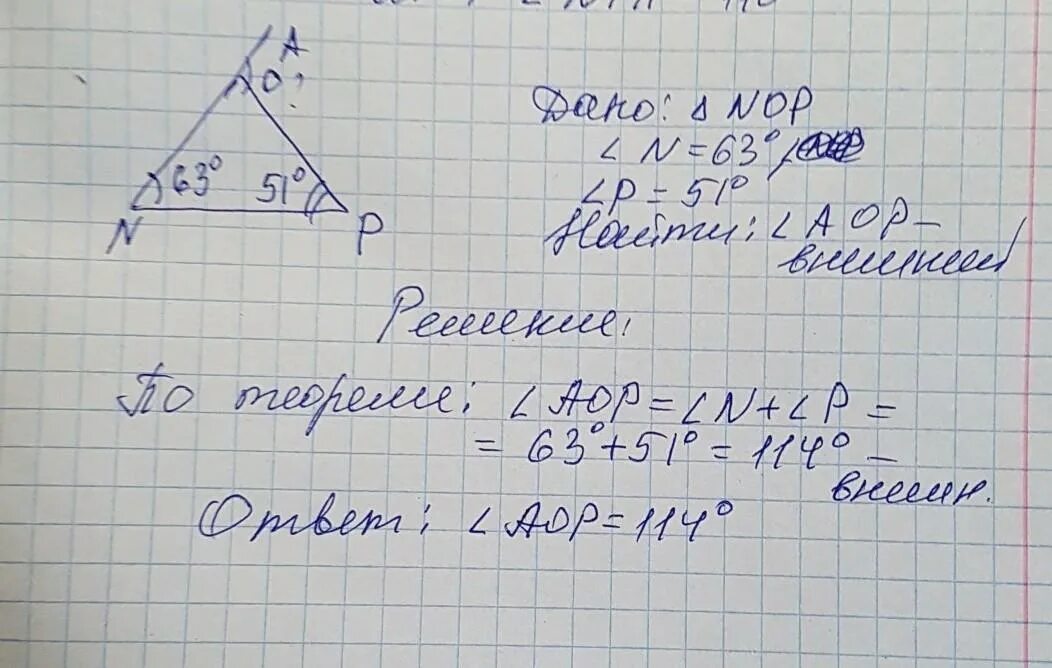 A
O
?
63°
51°
N
P
Дано: Δ NOP
∠ N = 63°,
∠P = 51°
Найти: ∠ AOP –
внешний
Решение:
По теореме: ∠ AOP = ∠N + ∠P =
= 63° + 51° = 114° –
внешн.
Ответ: ∠ AOP = 114°